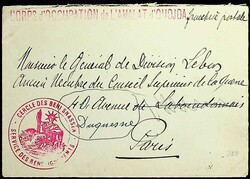 CORPS D'OCCUPATION DE L'AMALAT D'OUDJDA
franchise postale
Monsieur le Général de Division Lebon
Ancien Membre du Conseil Supérieur de la Guerre
Avenue de
Duquesne
Paris
CERCLE DES BENI SNASSEN
SERVICE DES RENSEIGNEMENTS